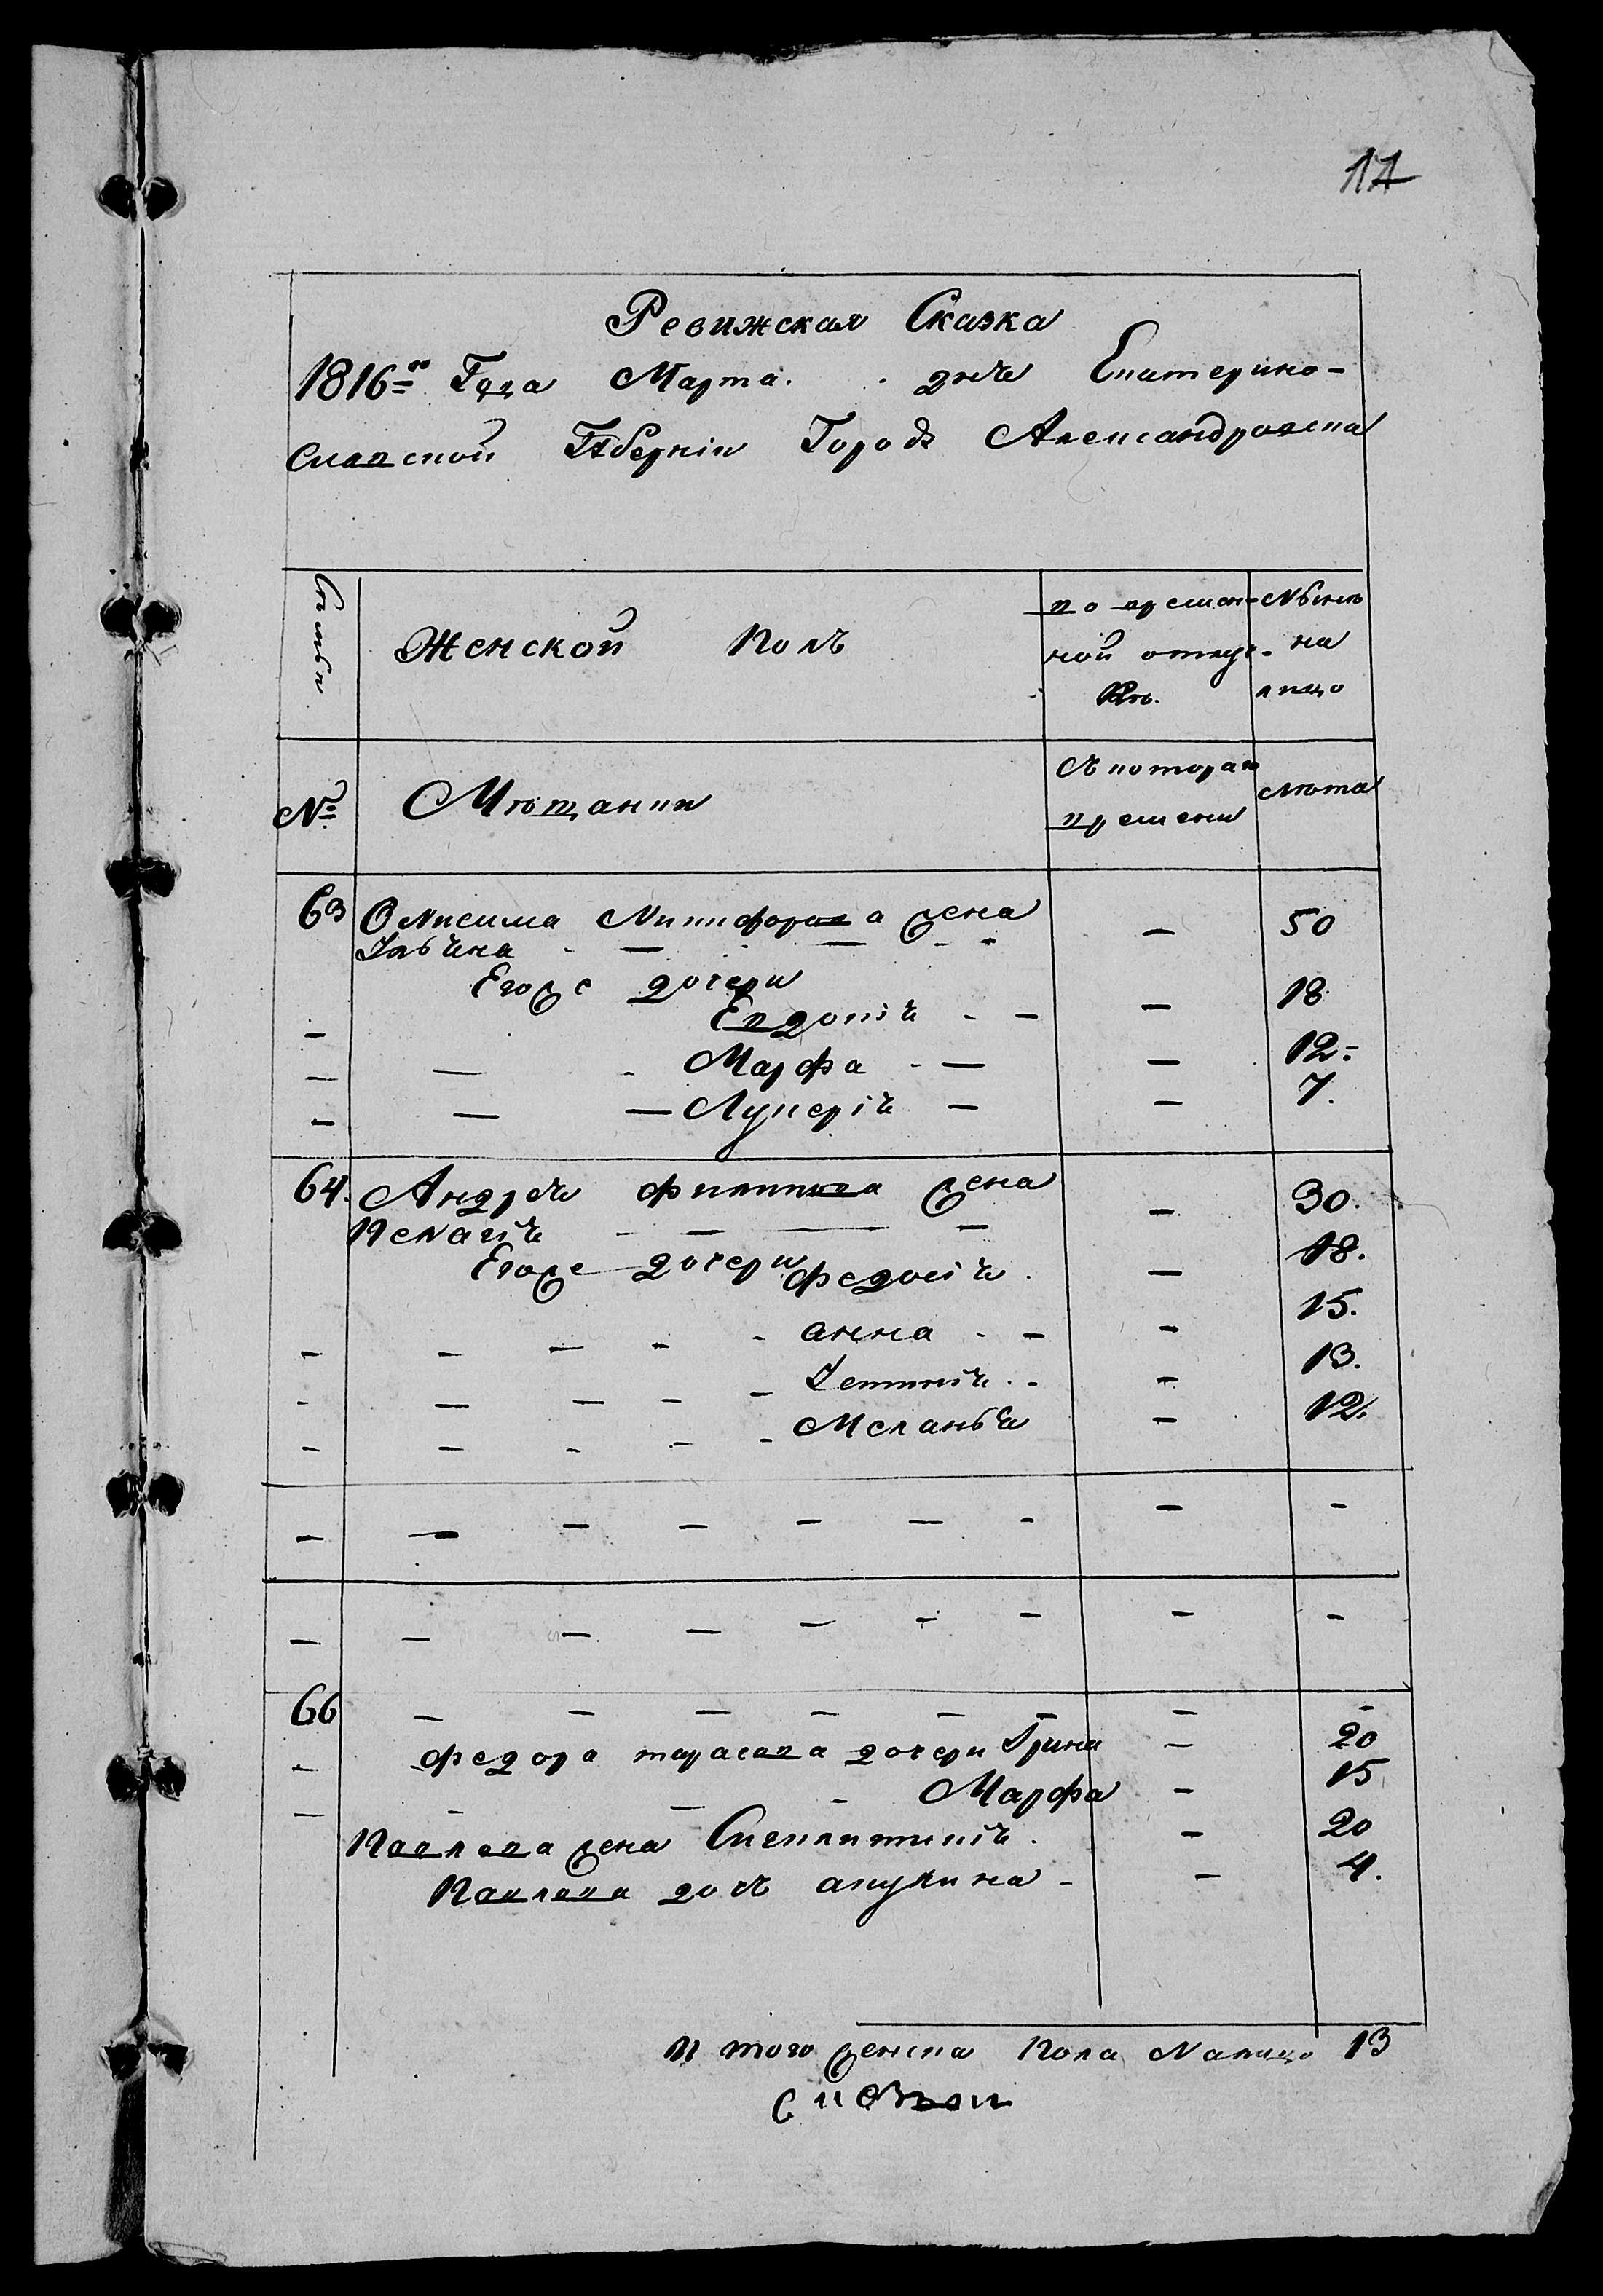 17
Ревижская Сказка
1816го Года Марта. дня Екатерино-
Славской Губерніи Города Александровска
Семьи Женской полъ по времен- Нынѣ
ной отлуч- на
кѣ. лицо
№ Мѣщанки Съ котораго Лѣта
времени
63 Онисима Никифорова жена
Ульяна — — — 50
Егоже дочери
Евдокія - — — 18
— Марфа - — — 12
— Лукерія — — 7.
64. Андрея филипова жена
Пелагія - — — — — 30.
Егоже дочери федосія . — 18.
— — — — - анна - — — 15.
- — — — - - — 13.
— — — — - Меланья — 12.
— — — — — — - — -
— — — — — — — — -
66 — — — — — — — -
— федора тарасова дочери Ирина — 20
— — — - Марфа - 15
Павлова жена . - 20
Павлова дочь акулина - - 4.
И того женска пола Налицо 13